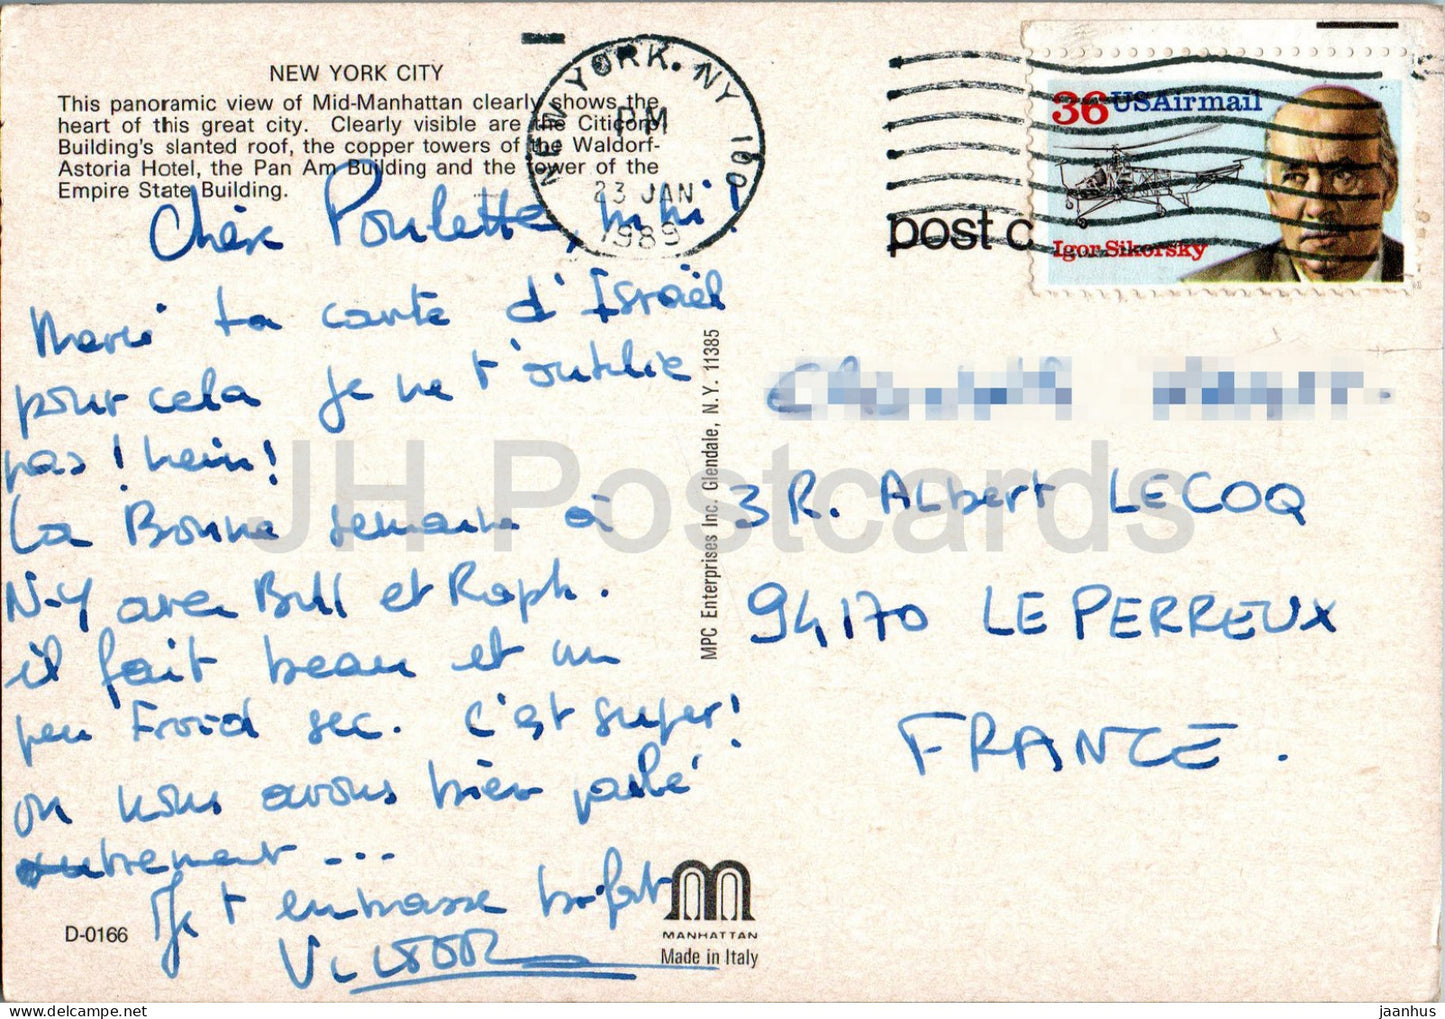 NEW YORK CITY
This panoramic view of Mid-Manhattan clearly shows the
heart of this great city. Clearly visible are the Citicorp
Building's slanted roof, the copper towers of the Waldorf-
Astoria Hotel, the Pan Am Building and the tower of the
Empire State Building.
NEW YORK. NY 100
PM
23 JAN
1989
36 USAirmail
Igor Sikorsky
post c
Chère Poulette, mimi!
Merci ta carte d'Israël
pour cela je ne t'oublie
pas! hein!
La Bonne semaine à
N-Y avec Bill et Raph.
il fait beau et un
peu Froid sec. c'est super!
on nous avons bien parlé
autrement ...
Je t embrasse
VICTOR
MPC Enterprises Inc. Glendale, N.Y. 11385
3 R. Albert LECOQ
94170 LE PERREUX
FRANCE.
D-0166
MANHATTAN
Made in Italy
JH Postcards
jaanhus